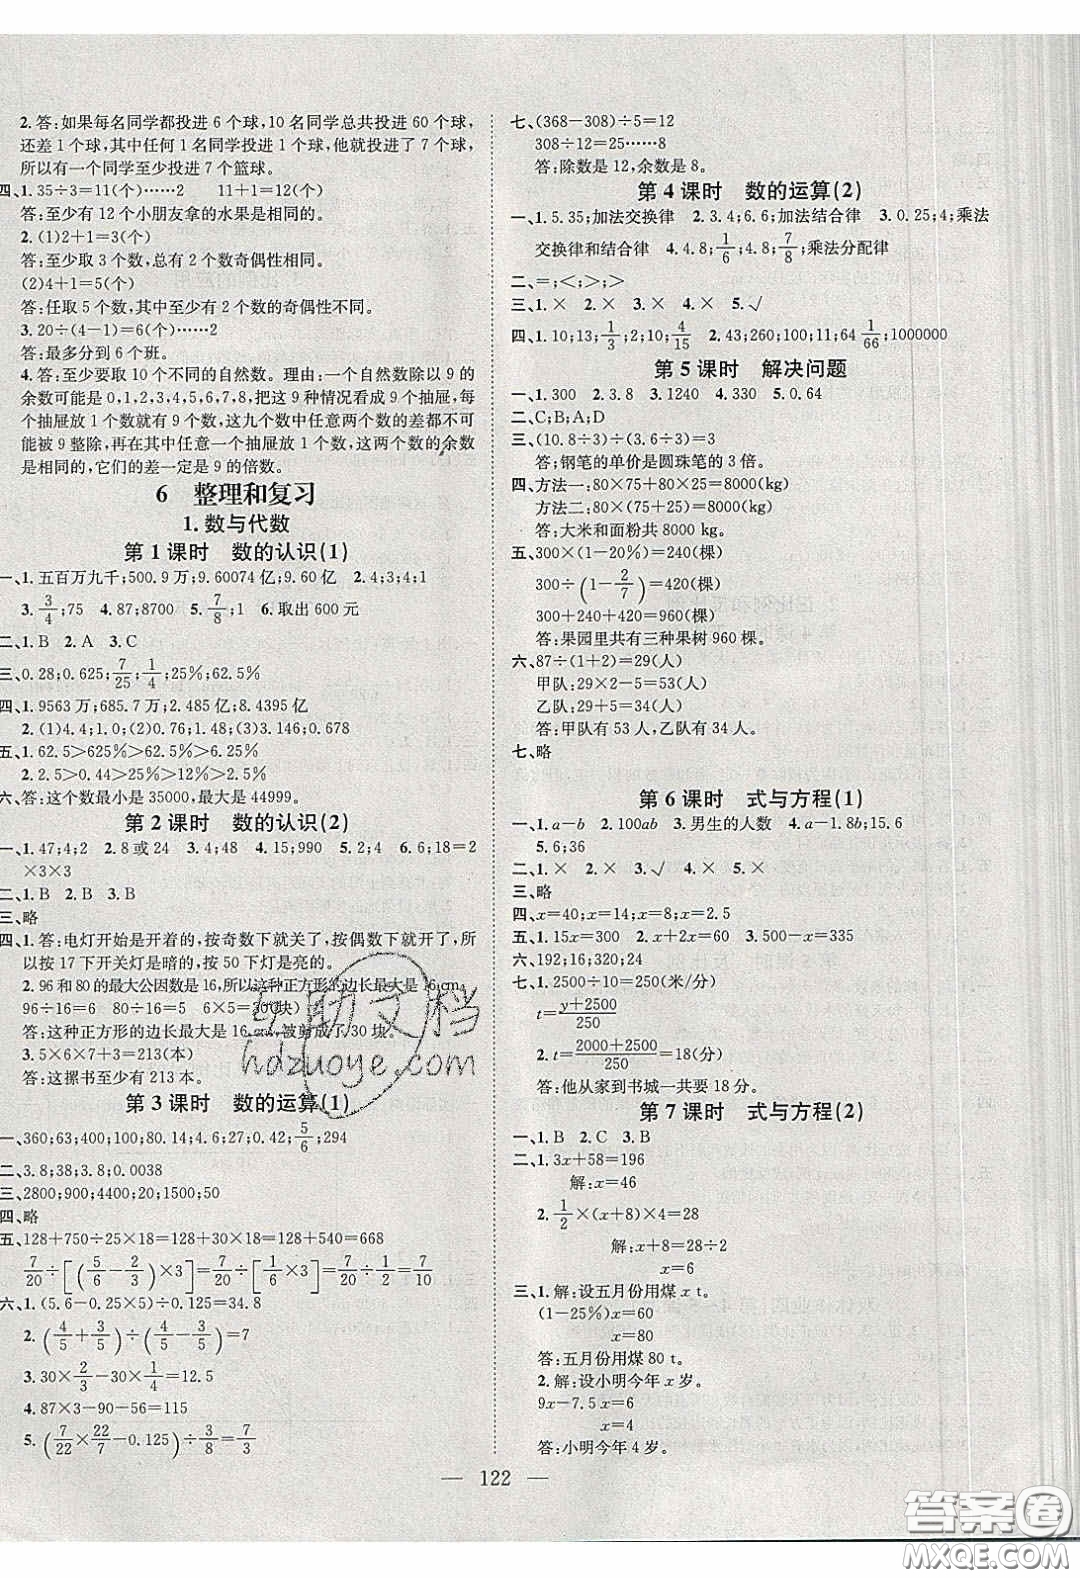 2.答:如果每名同学都投进 6 个球,10 名同学总共投进 60 个球,
还差 1 个球,其中任何 1 名同学再投进 1 个球,他就投进了 7 个球,
所以有一个同学至少投进 7 个篮球。
四、1.35÷3=11(个)……2 11+1=12(个)
答:至少有 12 个小朋友拿的水果是相同的。
2.(1)2+1=3(个)
答:至少取 3 个数,总有 2 个数奇偶性相同。
(2)4+1=5(个)
答:任取 5 个数,其中至少有 2 个数的奇偶性不同。
3.20÷(4-1)=6(个)……2
答:最多分到 6 个班。
4.答:至少要取 10 个不同的自然数。理由:一个自然数除以 9 的
余数可能是 0,1,2,3,4,5,6,7,8,把这 9 种情况看成 9 个抽屉,每
个抽屉放 1 个数就有 9 个数,这九个数中任意两个数的差都不可
能被 9 整除,再在其中任意一个抽屉放 1 个数,这两个数的余数
是相同的,它们的差一定是 9 的倍数。
6 整理和复习
1.数与代数
第 1 课时 数的认识(1)
一、1.五百万九千;500.9 万;9.60074 亿;9.60 亿 2.4;3;4;1
3.3/4;75 4.87;8700 5.7/8;1 6.取出 600 元
二、1.B 2.A 3.C
三、0.28;0.625;7/25;1/4;25%;62.5%
四、1.9563 万;685.7 万;2.485 亿;8.4395 亿
2.(1)4.4;1.0;(2)0.76;1.48;(3)3.146;0.678
五、1.62.5>625%>62.5%>6.25%
2.2.5>0.44>25%>12.5%>0.12
六、答:这个数最小是 35000,最大是 44999。
第 2 课时 数的认识(2)
一、1.47;4;2 2.8 或 24 3.4;48 4.15;990 5.2;4 6.6;18=2
×3×3
二、1.B 2.B 3.B
三、略
四、1.答:电灯开始是开着的,按奇数下就关了,按偶数下就开了,所
以按 17 下开关灯是暗的,按 50 下灯是亮的。
2.96 和 80 的最大公因数是 16,所以这种正方形的边长最大是 16 cm。
96÷16=6 80÷16=5 6×5=30(块)
答:这种正方形的边长最大是 16 cm,被剪成了 30 块。
3.5×6×7+3=213(本)
答:这摞书至少有 213 本。
第 3 课时 数的运算(1)
一、360;63;400;100;80.14.6;27;0.42;5/6;294
二、3.8;38;3.8;0.0038
三、2800;900;4400;20;1500;50
四、略
五、128+750÷25×18=128+30×18=128+540=668
7/20÷[(5/6-2/3)×3]=7/20÷[1/6×3]=7/20÷1/2=7/10
六、1.(5.6-0.25×5)÷0.125=34.8
2.(4/5+3/5)÷(4/5-3/5)=7
3.30×2/3-30×1/4=12.5
4.87×3-90-56=115
5.(7/22×22/7-0.125)÷3/8=7/3
七、(368-308)÷5=12
308÷12=25……8
答:除数是 12,余数是 8。
第 4 课时 数的运算(2)
一、1.5.35;加法交换律 2.3.4;6.6;加法结合律 3.0.25;4;乘法
交换律和结合律 4.4.8;1/6;4.8;7/8;乘法分配律
二、=;<;>;>
三、1.× 2.× 3.× 4.× 5.√
四、1.10;13;1/3;2;10;4/15 2.43;260;100;11;64 1/66;1000000
第 5 课时 解决问题
一、1.300 2.3.8 3.1240 4.330 5.0.64
二、C;B;A;D
三、(10.8÷3)÷(3.6÷3)=3
答:钢笔的单价是圆珠笔的 3 倍。
四、方法一:80×75+80×25=8000(kg)
方法二:80×(75+25)=8000(kg)
答:大米和面粉共 8000 kg。
五、300×(1-20%)=240(棵)
300÷(1-2/7)=420(棵)
300+240+420=960(棵)
答:果园里共有三种果树 960 棵。
六、87÷(1+2)=29(人)
甲队:29×2-5=53(人)
乙队:29+5=34(人)
答:甲队有 53 人,乙队有 34 人。
七、略
第 6 课时 式与方程(1)
一、1.a-b 2.100ab 3.男生的人数 4.a-1.8b;15.6
5.6;36
二、1.× 2.× 3.√ 4.× 5.×
三、略
四、x=40;x=14;x=8;x=2.5
五、1.15x=300 2.x+2x=60 3.500-x=335
六、192;16;320;24
七、1.2500÷10=250(米/分)
t=y+2500/250
2.t=2000+2500/250=18(分)
答:他从家到书城一共要 18 分。
第 7 课时 式与方程(2)
一、1.B 2.C 3.B
二、1.3x+58=196
解:x=46
2.1/2×(x+8)×4=28
解:x+8=28÷2
x=6
三、1.解:设五月份用煤 x t。
(1-25%)x=60
x=80
答:五月份用煤 80 t。
2.解:设小明今年 x 岁。
9x-7.5x=6
x=4
答:小明今年 4 岁。
122
互助文档
hdzuoye.com
答案圈
MXQE.COM